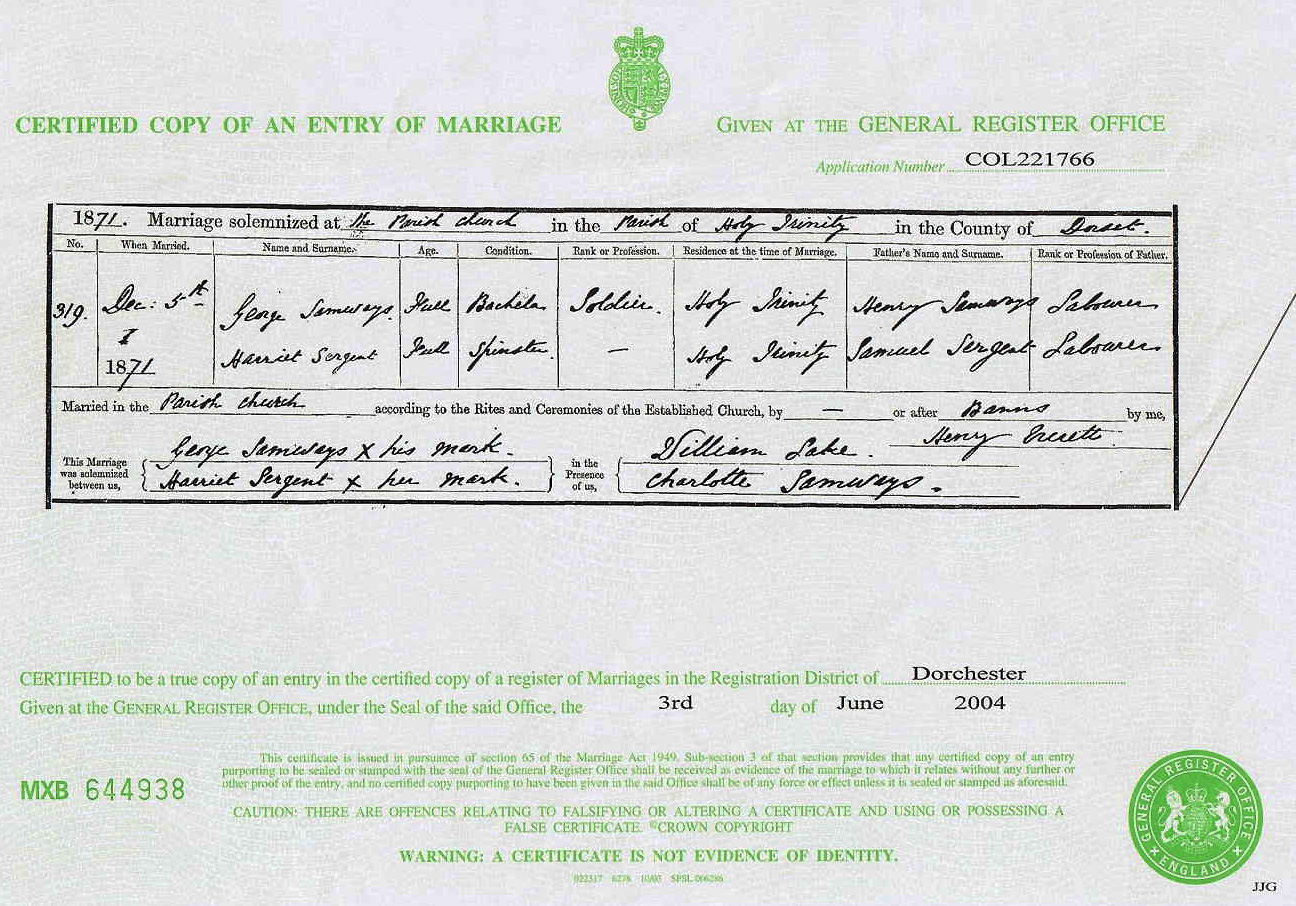 CERTIFIED COPY OF AN ENTRY OF MARRIAGE
GIVEN AT THE GENERAL REGISTER OFFICE
Application Number COL221766
1871. Marriage solemnized at the Parish church in the Parish of Holy Trinity in the County of Dorset.
No. When Married. Name and Surname. Age. Condition. Rank or Profession. Residence at the time of Marriage. Father's Name and Surname. Rank or Profession of Father.
319. Dec: 5th George Samways Full Bachelor Soldier. Holy Trinity Henry Samways Labourer
1871 Harriet Sergent Full Spinster. — Holy Trinity Samuel Sergent Labourer
Married in the Parish church according to the Rites and Ceremonies of the Established Church, by — or after Banns by me,
Henry Everett
This Marriage was solemnized between us,
George Samways X his mark.
Harriet Sergent X her mark.
in the Presence of us,
William Lake.
Charlotte Samways.
CERTIFIED to be a true copy of an entry in the certified copy of a register of Marriages in the Registration District of Dorchester
Given at the GENERAL REGISTER OFFICE, under the Seal of the said Office, the 3rd day of June 2004
MXB 644938
This certificate is issued in pursuance of section 65 of the Marriage Act 1949. Sub-section 3 of that section provides that any certified copy of an entry
purporting to be sealed or stamped with the seal of the General Register Office shall be received as evidence of the marriage to which it relates without any further or
other proof of the entry, and no certified copy purporting to have been given in the said Office shall be of any force or effect unless it is sealed or stamped as aforesaid.
CAUTION: THERE ARE OFFENCES RELATING TO FALSIFYING OR ALTERING A CERTIFICATE AND USING OR POSSESSING A
FALSE CERTIFICATE. ©CROWN COPYRIGHT
WARNING: A CERTIFICATE IS NOT EVIDENCE OF IDENTITY.
GENERAL REGISTER OFFICE
ENGLAND
JJG